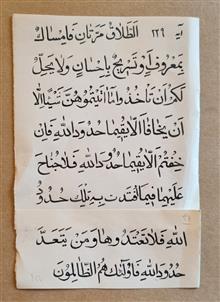 آية ١٢٩ اَلطَّلَاقُ مَرَّتَانِ فَاِمْسَاكٌ
بِمَعْرُوفٍ اَوْ تَسْرِيحٌ بِاِحْسَانٍ وَلَا يَحِلُّ
لَكُمْ اَنْ تَأْخُذُوا مِمَّا اٰتَيْتُمُوهُنَّ شَيْئًا اِلَّا
اَنْ يَخَافَا اَلَّا يُقِيمَا حُدُودَ اللّٰهِ فَاِنْ
خِفْتُمْ اَلَّا يُقِيمَا حُدُودَ اللّٰهِ فَلَا جُنَاحَ
عَلَيْهِمَا فِيمَا افْتَدَتْ بِهِ تِلْكَ حُدُودُ
اللّٰهِ فَلَا تَعْتَدُوهَا وَمَنْ يَتَعَدَّ
حُدُودَ اللّٰهِ فَاُولٰئِكَ هُمُ الظَّالِمُونَ